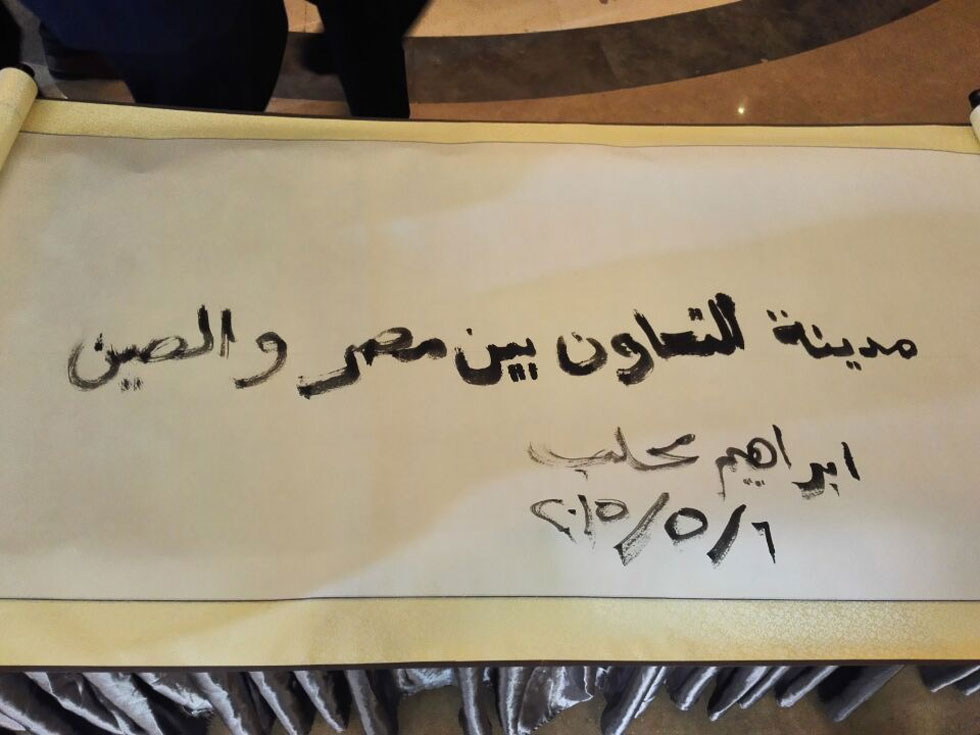 مدينة التعاون بين مصر والصين
ابراهيم محلب
٢٠١٥/٥/٦